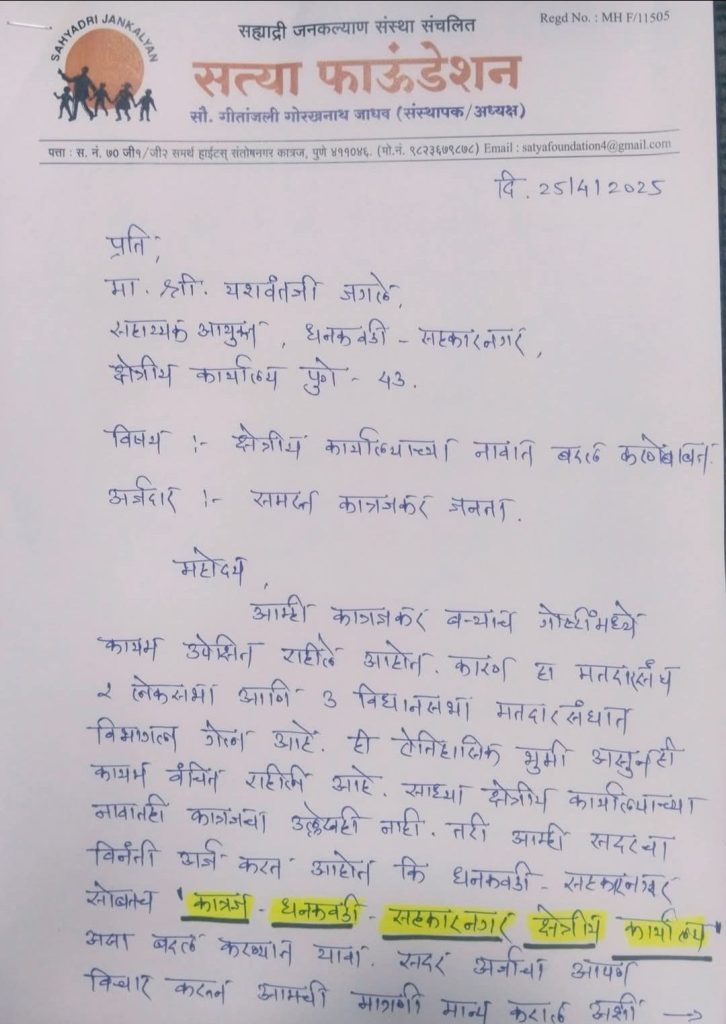 SAHYADRI JANKALYAN
सह्याद्री जनकल्याण संस्था संचलित
Regd No. : MH F/11505
सत्या फाऊंडेशन
सौ. गीतांजली गोरखनाथ जाधव (संस्थापक/अध्यक्ष)
पत्ता : स. नं. ७० जी१/जी२ समर्थ हाईटस् संतोषनगर कात्रज, पुणे ४११०४६. (मो.नं. ९८२३६७९८७८) Email : satyafoundation4@gmail.com
दि. 25/4/2025
प्रति,
मा. श्री. यशवंतजी जगले,
सहाय्यक आयुक्त, धनकवडी - सहकारनगर,
क्षेत्रीय कार्यालय पुणे - 43.
विषय :- क्षेत्रीय कार्यालयाच्या नावात बदल करणेबाबत
अर्जदार :- समस्त कात्रजकर जनता.
महोदय,
आम्ही कात्रजकर बऱ्याच गोष्टींमध्ये
कायम उपेक्षित राहीले आहोत. कारण हा मतदारसंघ
२ लोकसभा आणि ३ विधानसभा मतदारसंघात
विभागला गेला आहे. ही ऐतिहासिक भूमी असुनही
कायम वंचित राहीली आहे. साध्या क्षेत्रीय कार्यालयाच्या
नावातही कात्रजचा उल्लेखही नाही. तरी आम्ही सदरचा
विनंती अर्ज करत आहोत कि धनकवडी - सहकारनगर
सोबतच 'कात्रज - धनकवडी - सहकारनगर क्षेत्रीय कार्यालय'
असा बदल करण्यात यावा. सदर अर्जाचा आपण
विचार करून आमची मागणी मान्य कराल अशी →